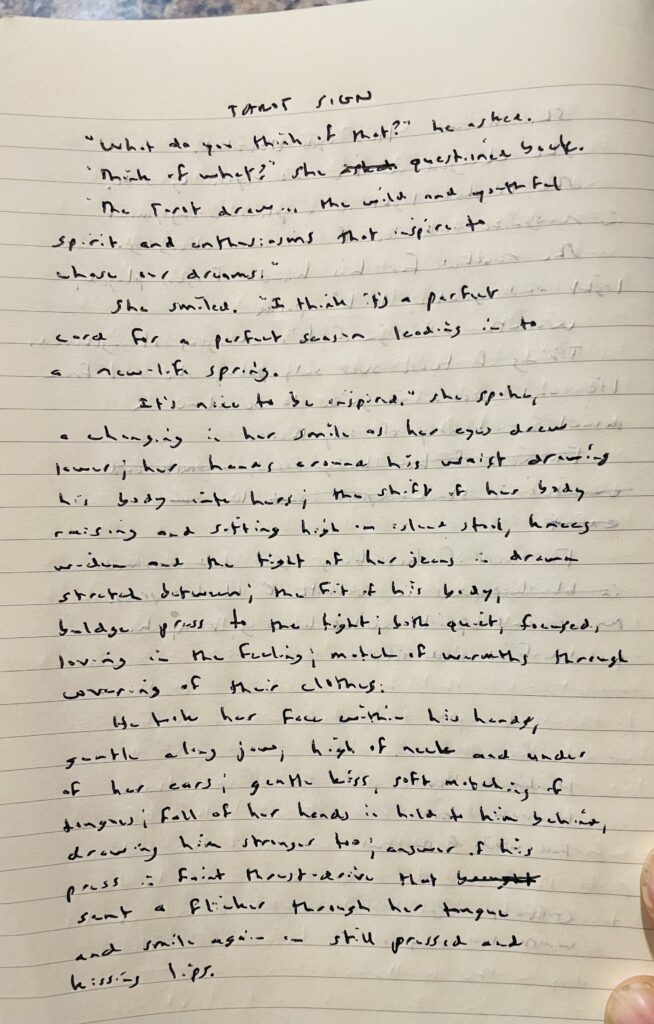 TAROT SIGN
"What do you think of that?" he asked.
"Think of what?" she asked questioned back.
"The Tarot draw... the wild and youthful
spirit and enthusiasms that inspire to
chase our dreams."
She smiled. "I think it's a perfect
card for a perfect season leading in to
a new-life spring.
It's nice to be inspired." she spoke,
a changing in her smile as her eyes drew
lower; her hands around his waist drawing
his body into hers; the shift of her body
raising and sitting high on island stool, knees
widen and the tight of her jeans in drawn
stretch between; the fit of his body,
buldge press to the tight; both quiet, focused,
loving in the feeling; match of warmths through
covering of their clothes.
He took her face within his hands,
gentle along jaw, high of neck and under
of her ears; gentle kiss, soft matching of
tongues; fall of her hands in hold to him behind,
drawing him stronger too; answer of his
press in faint thrust-drive that brought
sent a flicker through her tongue
and smile again in still pressed and
kissing lips.